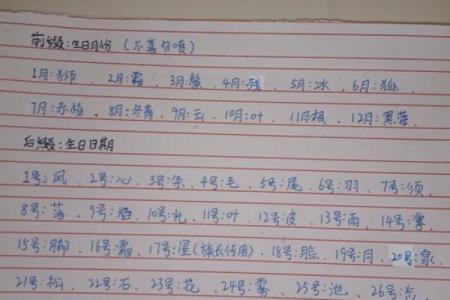 前缀:生日月份 (不喜勿喷)
1月:狮、2月:霜、3月:鬃、4月:残、5月:冰、6月:狐
7月:赤杨、8月:冬青、9月:云、10月:叶、11月:根、12月:黑莓
后缀:生日日期
1号:风、2号:心、3号:条、4号:毛、5号:尾、6号:羽、7号:须
8号:落、9号:焰、10号:礼、11号:叶、12号:皮、13号:雨、14号:掌
15号:脚、16号:霜、17号:星(族长传用)、18号:脸、19号:月、20号:泉
21号:松、22号:石、23号:花、24号:雾、25号:池、26号:流